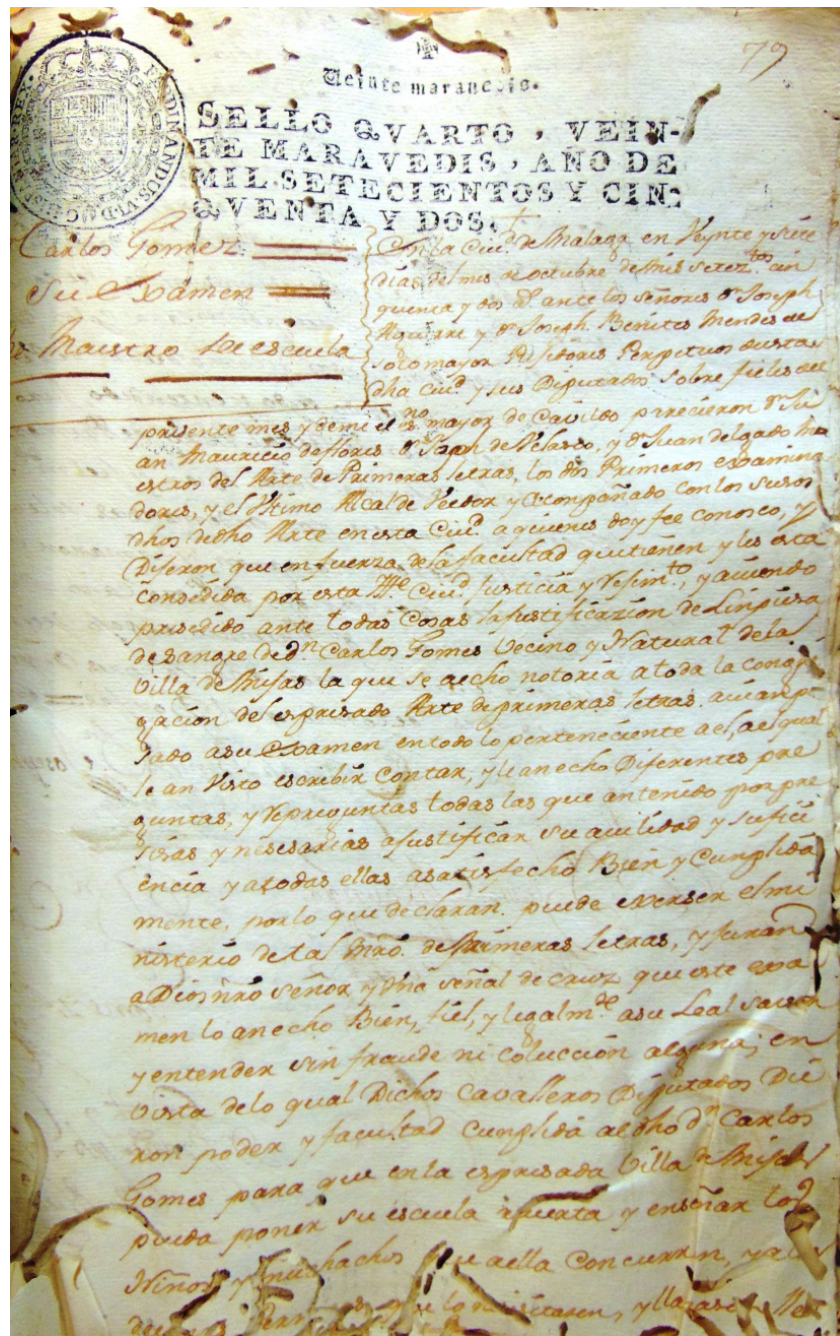 79
Veinte maravedis.
SELLO QVARTO, VEIN-
TE MARAVEDIS, AÑO DE
MIL SETECIENTOS Y CIN-
QVENTA Y DOS.
FERDINANDUS VI D G HISPANIAR REX
Carlos Gomez
Su Examen
de Maestro de escuela
En la Ciud. de Malaga en Veynte y siete
dias del mes de octubre de mis setez.tos cin
quenta y dos as. ante los señores Dn Joseph
y Dn Joseph Benites Mendes de
sotomayor Rejidores Perpetuos de esta
dha ciud. y sus Diputados sobre fieles del
presente mes y de mi el es.no mayor de Cavildo parecieron Dn Ju
an Mauricio de flores Dn de Velasco, y Dn Juan delgado ma
estros del Arte de Primeras letras, los dos Primeros examina
dores, y el Vtimo Alcalde Veedor y Acompañado con los suso
dhos de dho Arte en esta Ciud. a quienes doy fee conosco, y
Dijeron que en fuerza de la facultad que tienen y les esta
consedida por esta Ille. Ciud. Justicia y Rejim.to, y auiendo
presedido ante todas Cosas la justificazion de Linpiesa
de sangre de dn. Carlos Gomes Vecino y Natural de la
Villa de Mijas la que se a echo notoria a toda la congre
gacion del espresado Arte de primeras letras. an
sado a su Examen en todo lo perteneciente a el, ael qual
le an Visto escribir contar, y le an echo Diferentes pre
guntas, y Repreguntas todas las que an tenido por pre
sisas y nesesarias a justificar su auilidad y sufici
encia y a todas ellas a satisfecho Bien y Cumplida
mente, por lo que declaran puede exerser el mi
nisterio de tal Mro. de Primeras letras, y juran
a Dios nro señor y Vna señal de cruz que este exa
men lo an echo Bien, fiel, y legalm.te a su Leal saver
y entender sin fraude ni coluccion alguna; en
Vista de lo qual Dichos Cavalleros Diputados Die
ron poder y facultad cumplida a el dho dn. Carlos
Gomes para que en la espresada Villa de Mijas
pueda poner su escuela avierta y enseñar
Niños y muchachos que a ella Concurran, y a
que lo nesesitaren, y